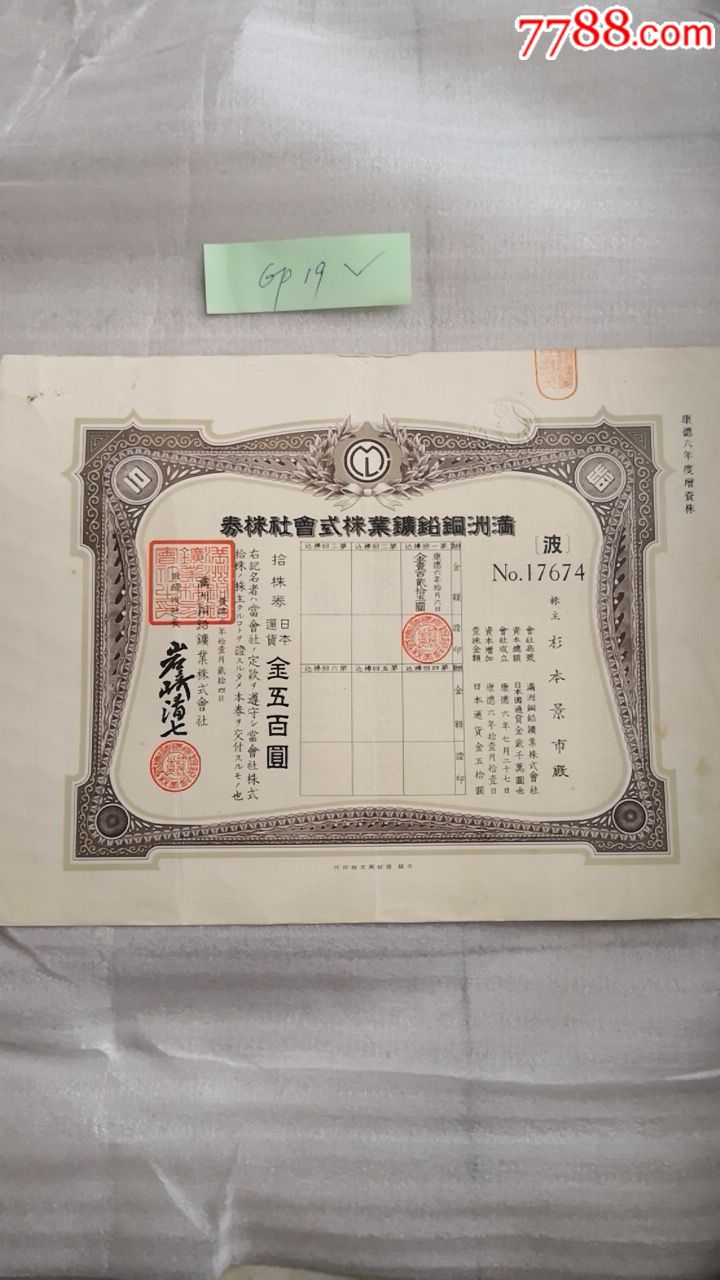 7788.com
Gp 19 ✓
康德六年度增資株
滿洲銅鉛鑛業株式會社株券
〔波〕
No.17674
株主 杉本景市殿
會社商號 滿洲銅鉛鑛業株式會社
資本總額 日本國通貨金貳千萬圓也
會社成立 康德六年七月二十七日
資本增加 康德六年拾壹月拾壹日
壹株金額 日本通貨金五拾圓
第一回拂込
第二回拂込
第三回拂込
金額
證印
康德六年拾月六日
金壹百貳拾五圓
第四回拂込
第五回拂込
第六回拂込
金額
證印
拾株券 日本通貨 金五百圓
右記名者ハ當會社ノ定款ヲ遵守シ當會社株式
拾株ノ株主タルコトヲ證スルタメ本券ヲ交付スルモノ也
年拾壹月貳拾四日
滿洲銅鉛鑛業株式會社